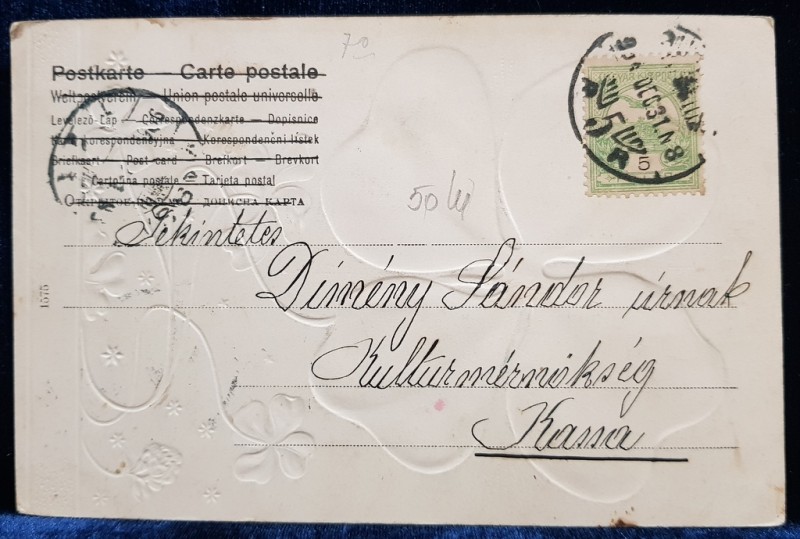 70
Postkarte — Carte postale
Weltpostverein — Union postale universelle
Levelező-Lap — Correspondenzkarte — Dopisnice
Karta korespondencyjna — Korespondenční lístek
Briefkaart — Post card — Brefkort — Brevkort
Cartolina postale — Tarjeta postal
ОТКРЫТОЕ ПИСЬМО — ДОПИСНА КАРТА
50 lei
Tekintetes
Dimény Sándor úrnak
Kulturmérnökség
Kassa
1575
904 DEC 31 N8